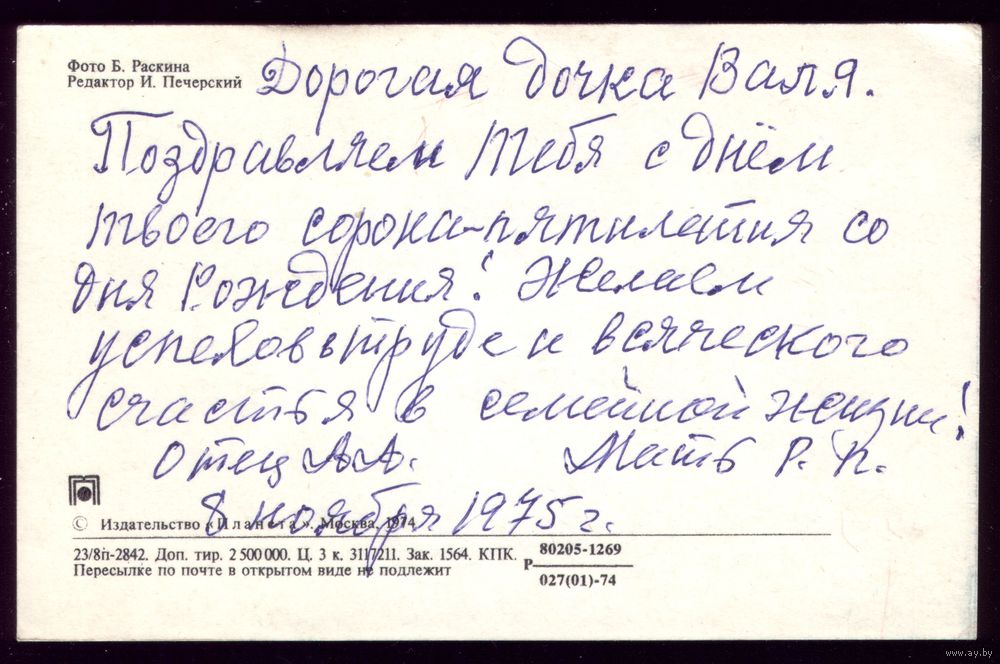 Фото Б. Раскина
Редактор И. Печерский
Дорогая дочка Валя.
Поздравляем тебя с днём
твоего сорока-пятилетия со
дня Рождения! Желаем
успехов в труде и всяческого
счастья в семейной жизни!
Отец А.А. Мать Р. К.
8 ноября 1975 г.
© Издательство «Планета». Москва. 1974
23/8п-2842. Доп. тир. 2 500 000. Ц. 3 к. 3117211. Зак. 1564. КПК.
Пересылке по почте в открытом виде не подлежит
Р 80205-1269
027(01)-74
www.ay.by